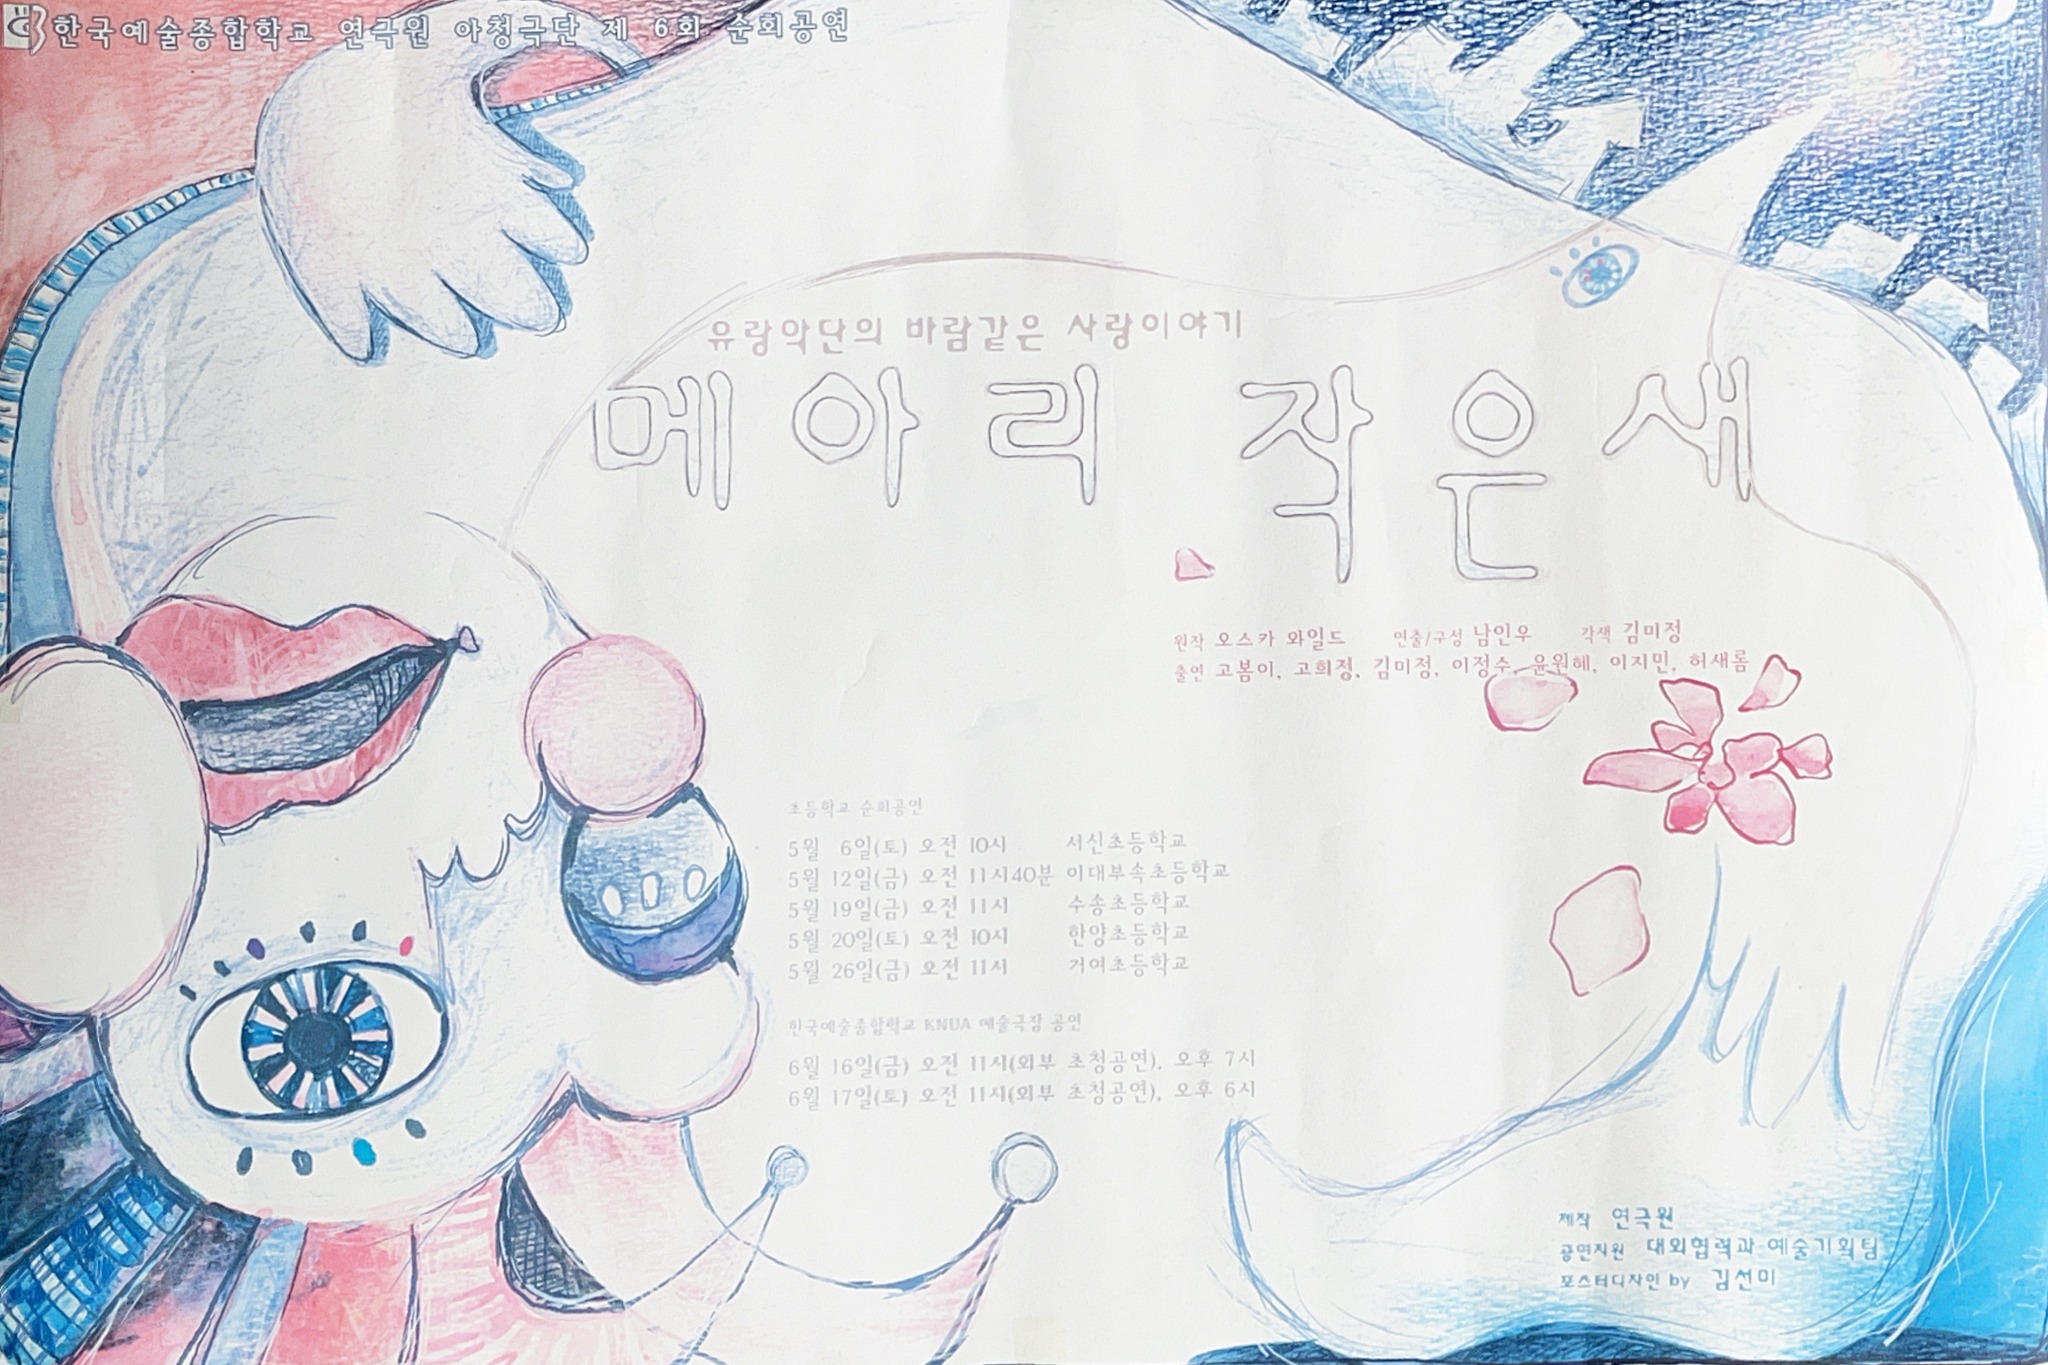 한국예술종합학교 연극원 아청극단 제 6회 순회공연
유랑악단의 바람같은 사랑이야기
메아리 작은새
원작 오스카 와일드 연출/구성 남인우 각색 김미정
출연 고봄이, 고희정, 김미정, 이정수, 윤원혜, 이지민, 허새롬
초등학교 순회공연
5월 6일(토) 오전 10시 서신초등학교
5월 12일(금) 오전 11시40분 이대부속초등학교
5월 19일(금) 오전 11시 수송초등학교
5월 20일(토) 오전 10시 한양초등학교
5월 26일(금) 오전 11시 거여초등학교
한국예술종합학교 KNUA 예술극장 공연
6월 16일(금) 오전 11시(외부 초청공연), 오후 7시
6월 17일(토) 오전 11시(외부 초청공연), 오후 6시
제작 연극원
공연지원 대외협력과 예술기획팀
포스터디자인 by 김선미